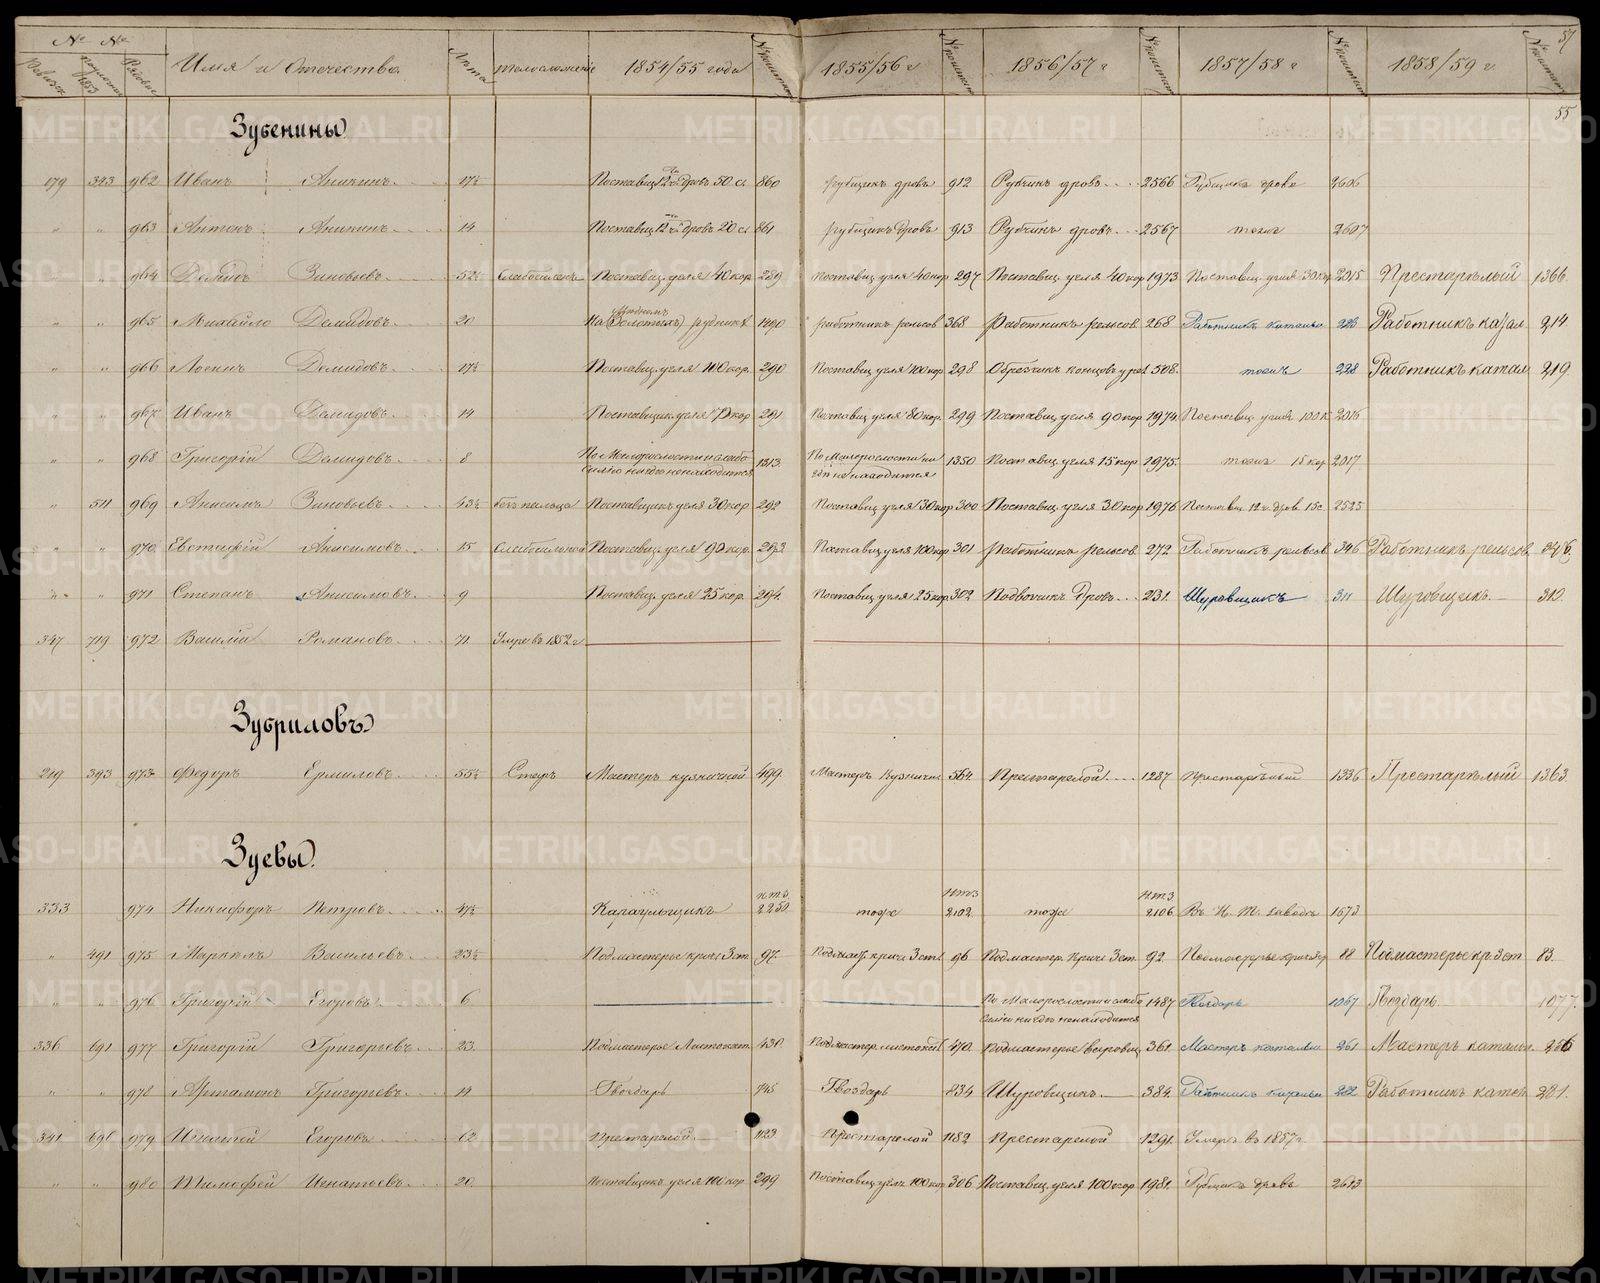 № №
Имя и Отчество.
Лѣта
телосложенiе
1854/55 года
1855/56 г
1856/57 г
1857/58 г
1858/59 г.
57
55
Зубенины
179 323 962 Иванъ Аникинъ 17½ 860 рубщикъ дровъ 912 Рубчикъ дровъ 2566 Рубщикъ дровъ 2606
" " 963 Антонъ Аникинъ 14 861 рубщикъ дровъ 913 Рубчикъ дровъ 2567 тоже 2607
" " 964 Демидъ Зиновьевъ 52½ Поставщ. угля 40 кор. 289 Поставщ. угля 40 кор 297 Поставщ. угля 40 кор 1973 Поставщ. угля 30 кор 2015 Престарѣлый 1366.
" " 965 Михайло Демидовъ 20 1290 работникъ рельсов 368. работникъ рельсов. 268 Работникъ катальн 223 Работникъ катал 214
" " 966 Логинъ Демидовъ 17½ Поставщ. угля 100 кор. 290 Поставщ угля 100 кор 298 Обрезчикъ концовъ у рел 508. тоже 228 Работникъ катал 219.
" " 967 Иванъ Демидовъ 14 Поставщик. угля 70 кор 291 Поставщ угля 80 кор. 299 Поставщ угля 90 кор 1974 Поставщ. угля 100 к 2016
" " 968 Григорiй Демидовъ 8 По Малорослости и слабо силiю нигдѣ ненаходится 1313. По Малорослости ни гдѣ не находится 1350 Поставщ. угля 15 кор 1975. тоже 15 кор 2017.
" 511 969 Анисимъ Зиновьевъ 43½ безъ пальца Поставщикъ угля 30 кор 292 Поставщ угля 30 кор 300 Поставщ. угля 30 кор 1976 Поставщ. 12 ч. дров. 15 с. 2525
" " 970 Евстафiй Анисимовъ 15 Слабосильной Поставщ. угля 90 кор. 293 Поставщ угля 100 кор. 301 работникъ рельсов. 272 Работникъ рельсов 346 Работникъ рельсов.
" " 971 Степанъ Анисимовъ 9 Поставщ. угля 25 кор. 294. Поставщ угля 25 кор 302 Подвозчикъ Дровъ 231. Шуровщикъ 311 Шуровщикъ. 310.
347 719 972 Василiй Романовъ 71 Умре въ 1852 г
Зубриловъ
219 393 973 Федоръ Ермиловъ 55½ Старъ Мастеръ кузнечной 499 Мастеръ Кузничн 564. Престарелой 1287 Престарѣлый 1336 Престарѣлый 1363.
Зуевы.
333 974 Никифоръ Петровъ 47½ Караульщикъ н.т.з. 2250 тоже н.т.з 2102. тоже н.т.з. 2106. Въ Н. Т. заводѣ 1673
" 491 975 Маркелъ Васильевъ 23½ Подмастерье крич 3 ст. 97. Подмаст. крич 3 ст 96 Подмастер. крич 3 ст. 92. Подмастерье крич 3 ст 88 Подмастерье кр. 3 ст 83.
" " 976 Григорiй Егоровъ 6 По Малорослости и слабо силiю нигдѣ ненаходится 1487 Гвоздарь 1067 Гвоздарь. 1077.
336 691 977 Григорiй Григорьевъ 23. Подмастерье Листокат. 430. Подмастер. листокат 470. Подмастерье 361. Мастеръ катальн 261 Мастеръ катальн. 256
" " 978 Артамонъ Григорьевъ 14 Гвоздарь 745 Гвоздарь 834 Шуровщикъ. 384. Работникъ катальн 282 Работникъ катал 281.
341 696 979 Игнатей Егоровъ 62 Престарелой 1123. Престарелой 1182 Престарелой 1291. Умеръ въ 1857 г.
" " 980 Тимофей Игнатьевъ 20. Поставщикъ угля 100 кор. 299 Поставщ. угля 100 кор 306 Поставщ. угля 100 кор. 1981. Рубщикъ дровъ 2613
METRIKI.GASO-URAL.RU